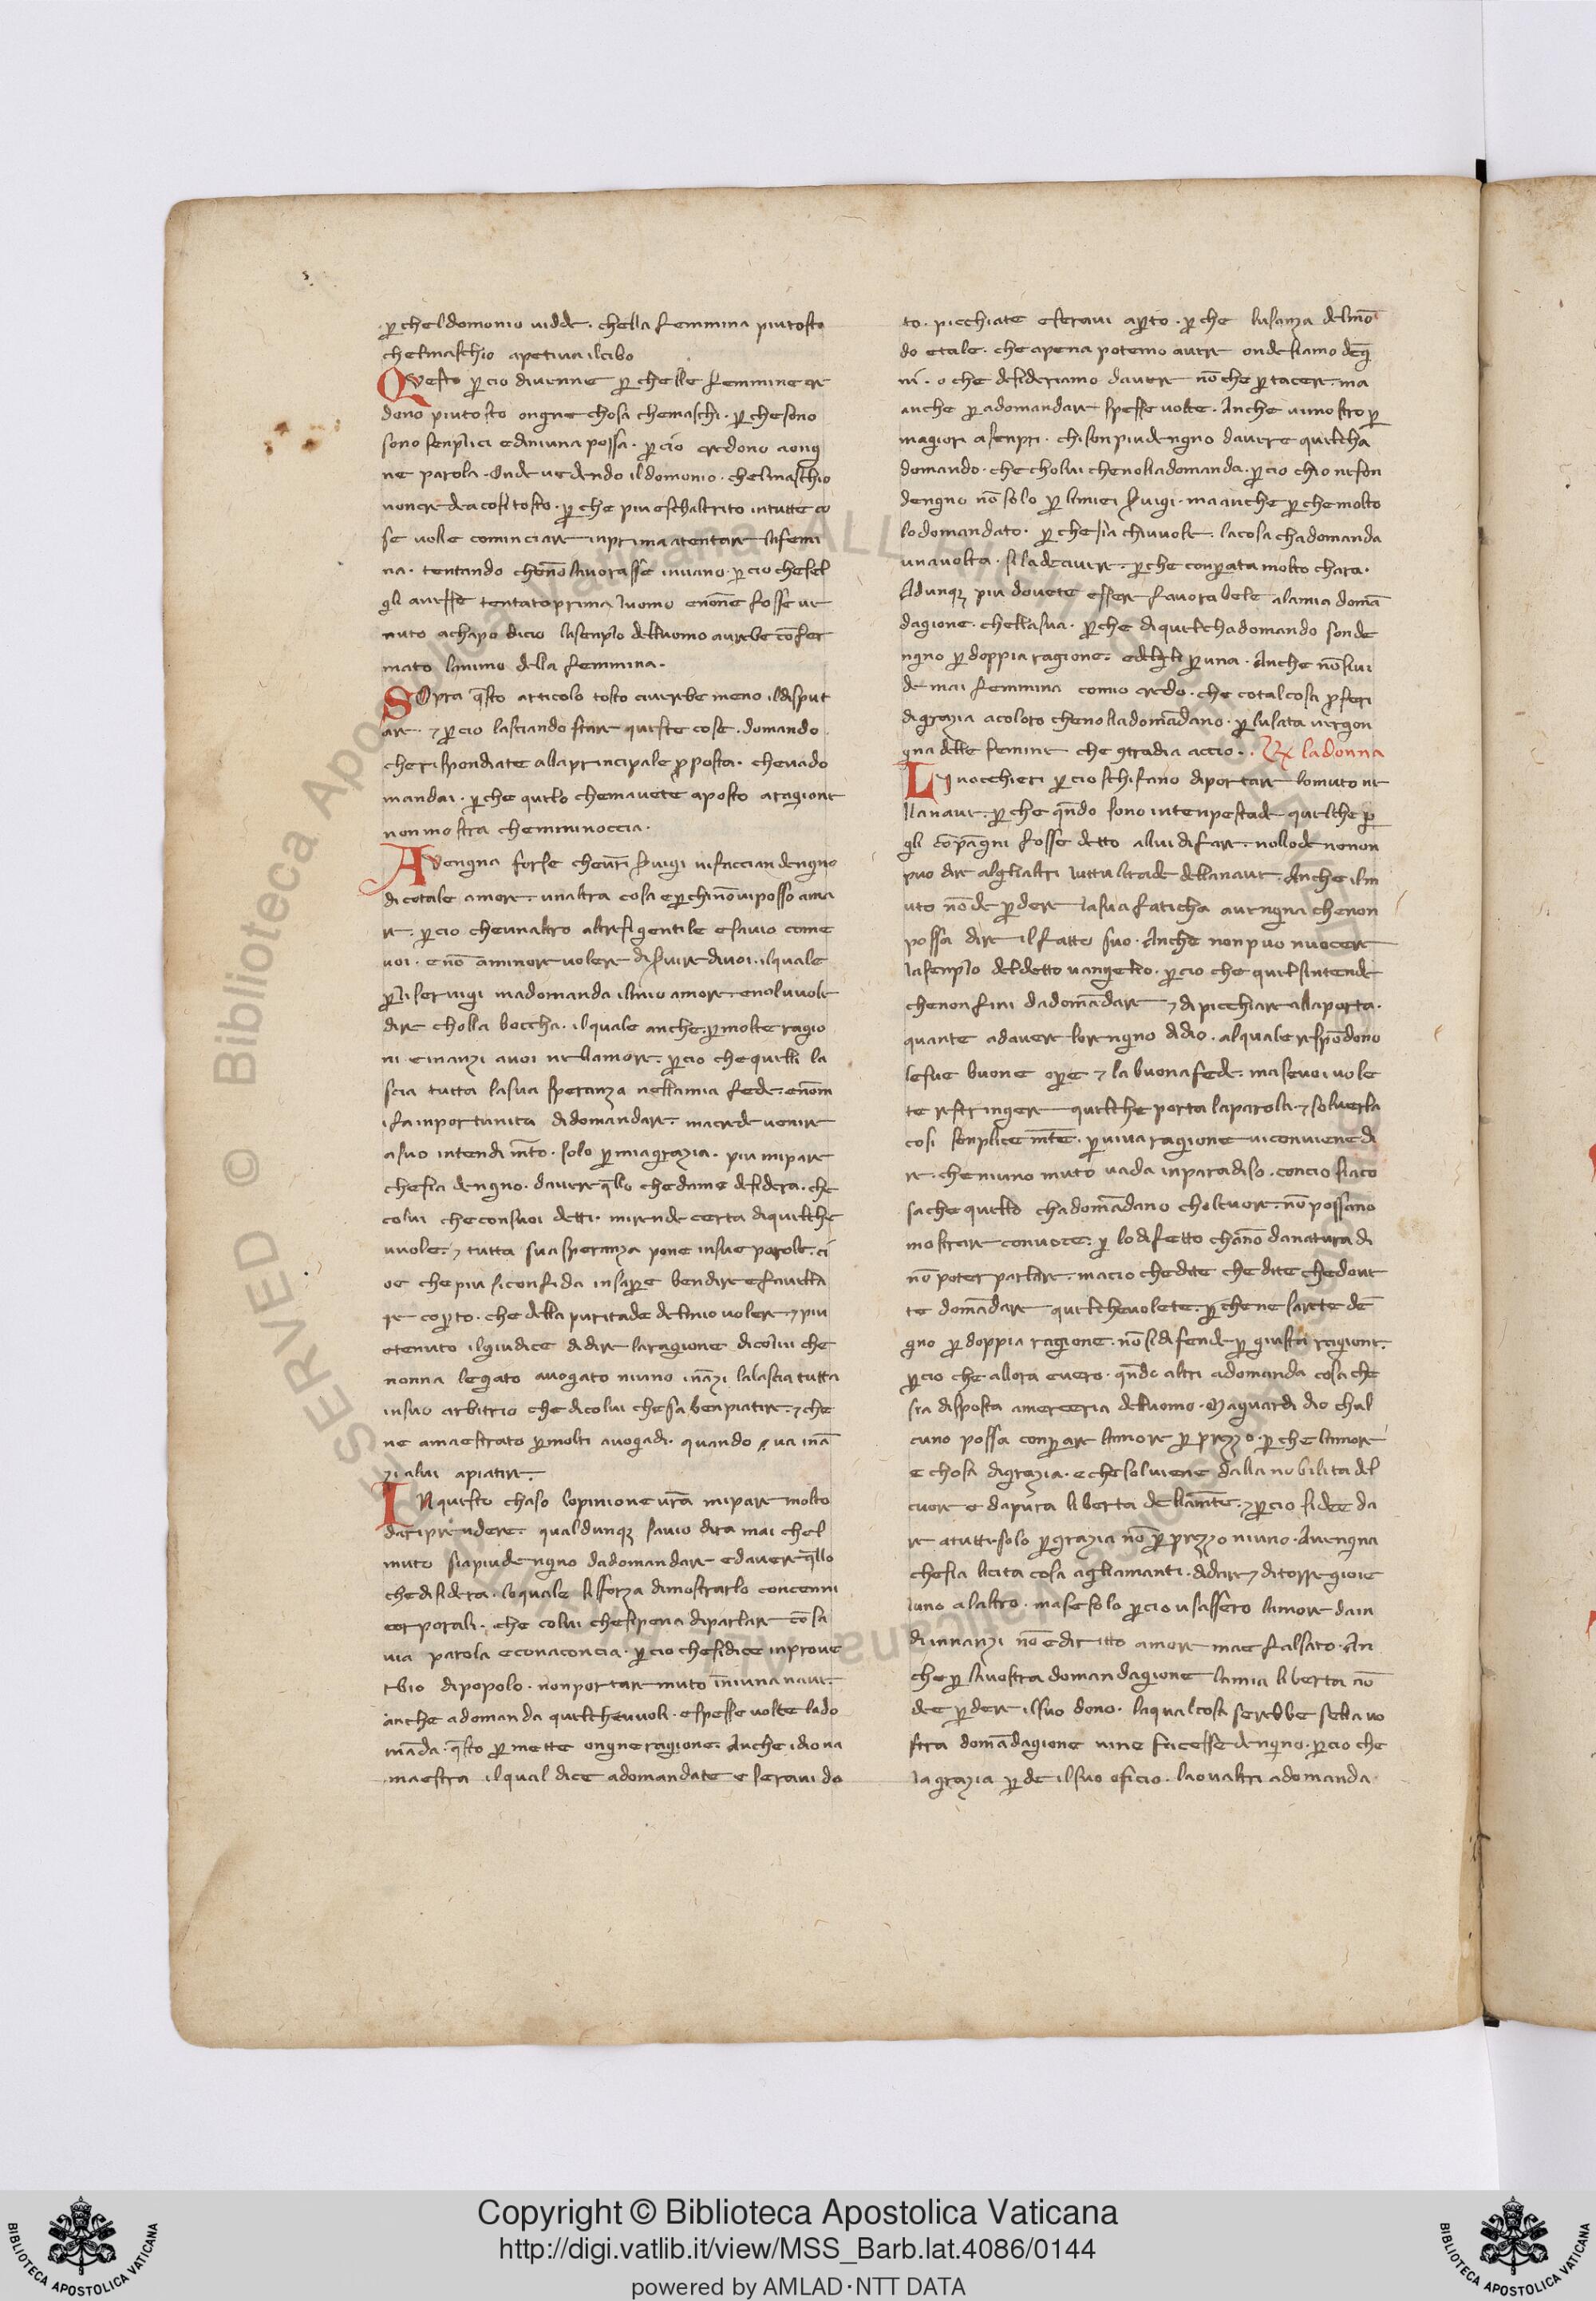 ꝑ cheldomonio vidde · chella femmina piutosto
chelmaschio apetiva ilcibo
Questo ꝑcio divenne ꝑ chelle femmine cre
deno piutosto ongne chosa chemaschi · ꝑ chesono
sono senplici ediniuna possa · ꝑcio credono aong
ne parola · Onde vedendo ildomonio · chelmaschio
noncredea cosi tosto · ꝑ che piu eschaltrito intutte co
se volle cominciare inprima atentare lafemi
na · tentando chenō lavorasse invano · ꝑcio chesel
gli avesse tentatoprima luomo enōne fosse ve
nuto achapo dicio lasenplo delluomo avrebe cōfer
mato lanimo della femmina ·
SOpra q̄sto articolo tosto averebe meno ildisput
are · ⁊ ꝑcio lasciando stare queste cose · domando
cherispondiate allaprincipale ꝓposta · chevado
mandai · ꝑche quello chemavete aposto aragione
nonmostra chemminoccia ·
AVengna forse chevr̄i servigi vifaccian dengno
dicotale amore · unaltra cosa eꝑchinōviposso ama
re · ꝑcio cheunaltro altresi gentile esavio come
voi · enō aminore volere diservire divoi · ilquale
ꝑli servigi madomanda ilmio amore · enolvuole
dire cholla boccha · ilquale anche ꝑmolte ragio
ni einanzi avoi nellamore · ꝑcio chequelli la
scia tutta lasua speranza nellamia fede · enōm
ifa inportunita didomandare · macrede venire
asuo intendim̄to · solo ꝑmiagrazia · piu mipare
chesia dengno · davere q̄llo chedame desidera · che
colui checonsuoi detti · mirende certa diquelche
vuole · ⁊ tutta sua speranza pone insue parole · ci
oe che piu siconfida insaꝑe bendire efavella
re coꝑto · che della puritade delmio volere · ⁊ piu
etenuto ilgiudice didire laragione dicolui che
nonna legato avogato niuno ināzi lalascia tutta
insuo arbitrio che dicolui chesa benpiatire · ⁊ che
ne amaestrato ꝑmolti avogadi · quando va inā
zi alui apiatire ·
INquesto chaso lopinione vr̄a mipare molto
dariprendere · qualdunqȝ savio dira mai chel
muto siapiudengno dadomandare edavere q̄llo
chedisidera · loquale sisforza dimostrarlo concenni
corporali · che colui chesipena diparlare cōsa
via parola econaconcia · ꝑcio chesidice inprove
rbio dipopolo · nonportare muto īniuna nave ·
anche adomanda quelchevuoli · espesse volte lado
māda · q̄sto ꝑmette ongne ragione · Anche idio na
maestra ilqual dice adomandate e seravi da
to · picchiate eseravi aꝑto · ꝑ che lusanza delmō
do etale · che apena potemo avere ondesiamo deḡ
ni · o che desideriamo davere nō che ꝑ tacere · ma
anche ꝑ adomandare spesse volte · Anche vimostro ꝑ
magiori asenpri · chi son piudengno davere quelcha
domando · che cholui chenolladomanda · ꝑcio chio neson
dengno nō solo ꝑ limiei servigi · ma anche ꝑ chemolto
lodomandato · ꝑ chesia chivuole · lacosa chadomanda
unavolta · sila de avere · ꝑche conꝑata molto chara ·
Adunqȝ piu dovete essere favorabele alamia domā
dagione · chellasua · ꝑche diquelchadomando sonde
ngno ꝑ doppia ragione · edelgli ꝑ una · Anche nōsivi
de mai femmina comio credo · che cotal cosa ꝓferi
digrazia acoloro chenolladomādano · ꝑ lusata vergon
gna delle femine che ꝯtradia accio · Rx ladonna
LJ nocchieri ꝑcio schifano diportare lomuto ne
llanave · ꝑ che qn̄do sono intenpestade quelche ꝑ
gli cōpāgni fosse detto allui difare · nollode nenon
puo dire alglialtri luttulitade dellanave · Anche ilm
uto nō de ꝑdere lasua faticha avengna chenon
possa dire ilfatto suo · Anche non puo nuocere
lasenplo deldetto vangelio · ꝑcio che quelsintende
chenon fini dadomādare ⁊ di picchiare allaporta ·
quante adavere loregno didio · alquale rispōdono
lesue buone oꝑe ⁊ la buona fede · ma sevoi vole
te restringere quelche porta laparola · ⁊ solverla
cosi senplicem̄te · ꝑ viva ragione viconviene di
re · cheniuno muto vada inparadiso · concio siaco
sache quello chadomādano cholcuore · nō possano
mostrare convoce · ꝑ lo difetto channo danatura di
nō poter parlare · macio chedite che dite chedove
te domādare quelchevolete · ꝑchene sarete dē
gno ꝑ doppia ragione · nō sidifende ꝑ giusta ragione ·
ꝑcio che allora evero · qn̄do altri adomanda cosa che
sia disposta amerceria delluomo · Maguardi dio chal
cuno possa conꝑare lamore ꝑ prezzo · ꝑ che lamore
e chosa digrazia · echesolviene dalla nobilita del
cuore e dapura liberta dellam̄te · ⁊ ꝑcio sidee da
re atutti solo ꝑ grazia nō ꝑ prezzo niuno · Avengna
chesia licita cosa agliamanti · didare ⁊ ditorre gioie
luno alaltro · masesolo ꝑcio usassero lamore dain
diinnanzi nō edritto amore mae falsato · An
che ꝑ lavostra domandagione lamia liberta nō
dee ꝑdere ilsuo dono · laqualcosa serebbe sella vo
stra domādagione vine facesse dengno · ꝑcio che
lagrazia ꝑde ilsuo oficio · laovaltri adomanda ·
Copyright © Biblioteca Apostolica Vaticana
http://digi.vatlib.it/view/MSS_Barb.lat.4086/0144
powered by AMLAD·NTT DATA
BIBLIOTECA APOSTOLICA VATICANA
BIBLIOTECA APOSTOLICA VATICANA